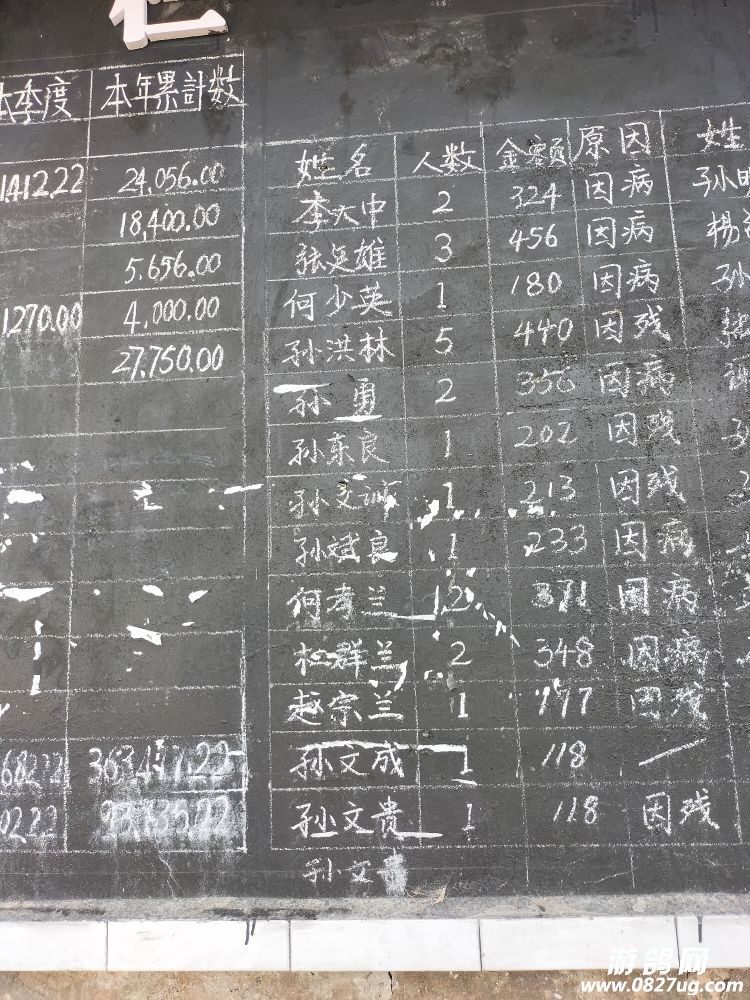 仁
本季度 本年累計数
141222 24,056.00
18,400.00
5,656.00
1270.00 4,000.00
27,750.00
6822
0222
姓名 人数 金额 原因 姓
李大中 2 324 因病 孙明
张英雄 3 456 因病 楊
何少英 1 180 因病 孙
孙洪林 5 440 因残
孙勇 2 356 因病
孙东良 1 202 因残
孙文 1 213 因残
孙斌良 1 233 因病
何孝兰 2 371 因病
杜群兰 2 348 因病
越宗兰 1 177 因残
孙文成 1 118 —
孙文贵 1 118 因残
孙文
游鸽网
www.0827ug.com